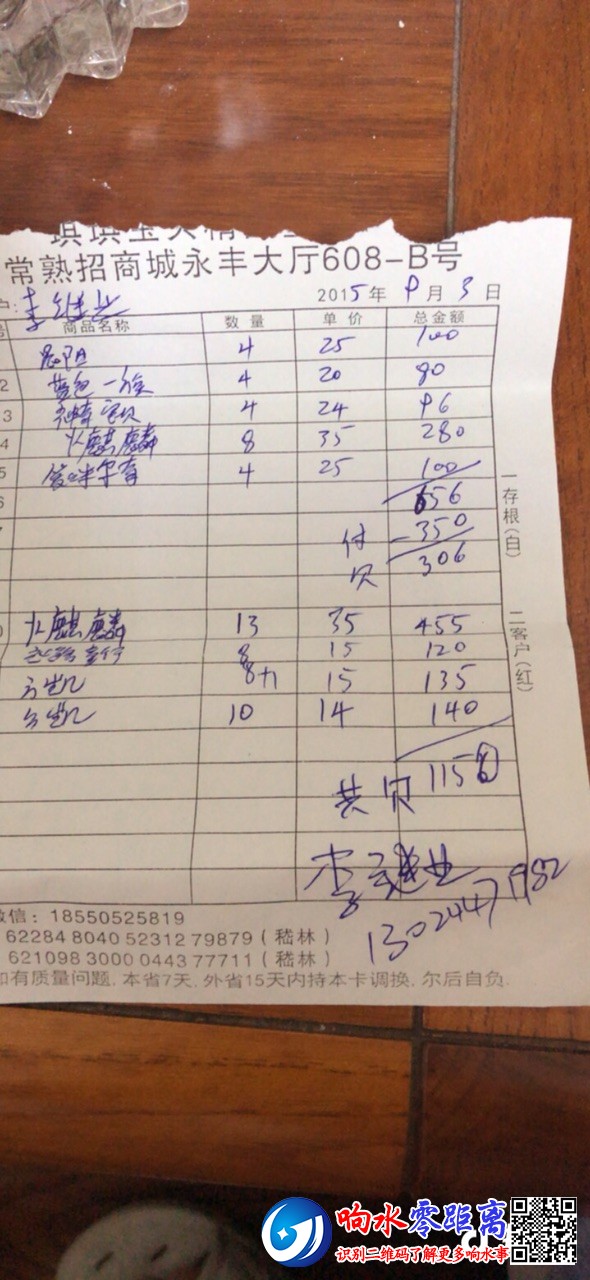 常熟招商城永丰大厅608-B号
2015年 9月 3日
商品名称 数量 单价 总金额
4 25 100
2 蓝色一族 4 20 80
3 4 24 96
4 火麒麟 8 35 280
5 4 25 100
6 656
付 -350
欠 306
火麒麟 13 35 455
8 15 120
15 135
10 14 140
共欠 1156
李继业
13024471982
一存根(白)
二客户(红)
微信: 18550525819
62284 8040 52312 79879 (嵇林)
621098 3000 0443 77711 (嵇林)
如有质量问题, 本省7天, 外省15天内持本卡调换, 尔后自负.
响水零距离
识别二维码了解更多响水事